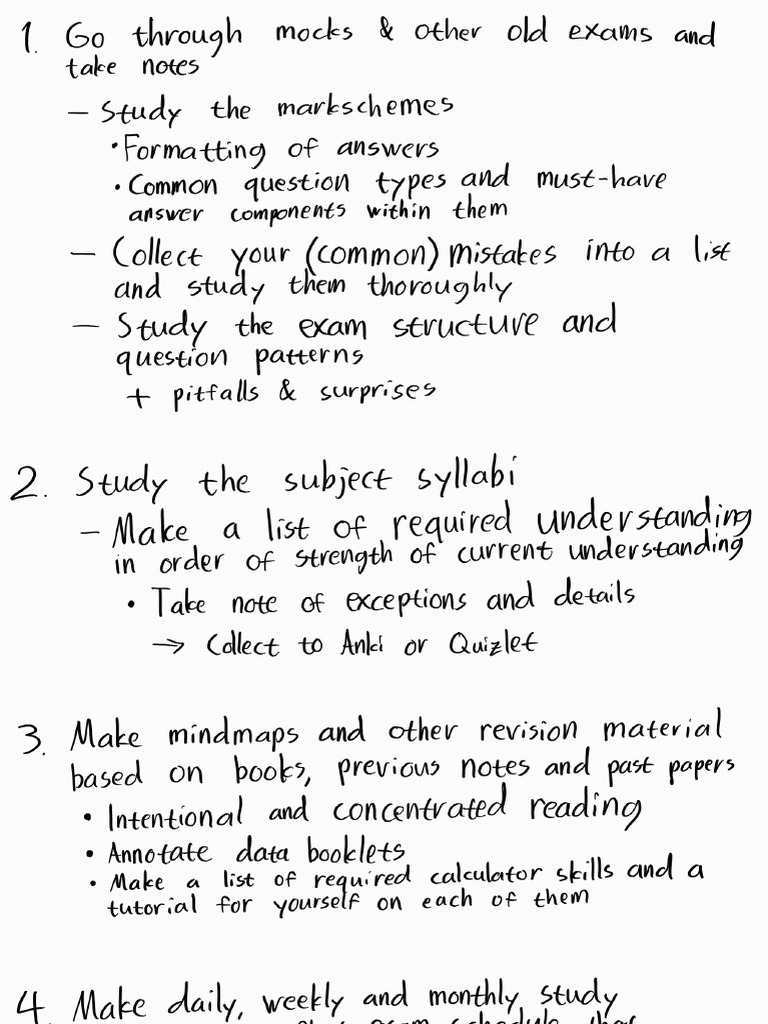 1. Go through mocks & other old exams and
take notes
— Study the markschemes
• Formatting of answers
• Common question types and must-have
answer components within them
— Collect your (common) mistakes into a list
and study them thoroughly
— Study the exam structure and
question patterns
+ pitfalls & surprises
2. Study the subject syllabi
– Make a list of required understanding
in order of strength of current understanding
• Take note of exceptions and details
→ Collect to Anki or Quizlet
3. Make mindmaps and other revision material
based on books, previous notes and past papers
• Intentional and concentrated reading
• Annotate data booklets
• Make a list of required calculator skills and a
tutorial for yourself on each of them
4. Make daily, weekly and monthly study
exam schedule that